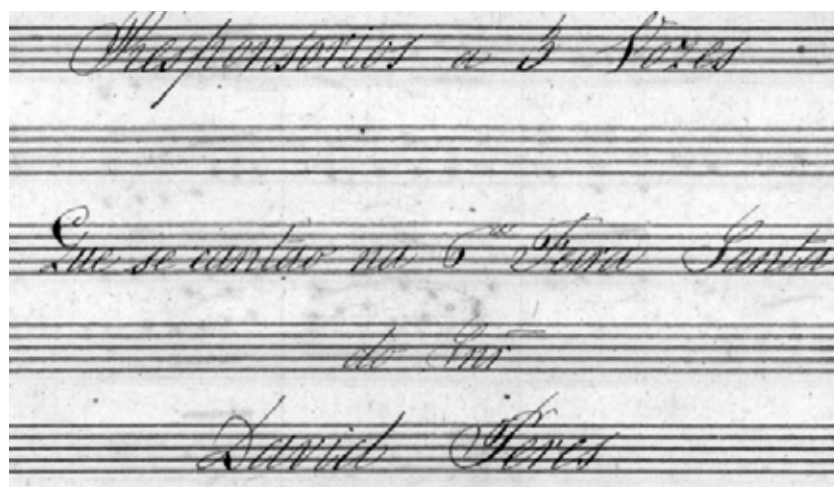 Responsorios a 3 Vozes
Que se cantão na 6ª Feira Santa
do Snr
David Peres